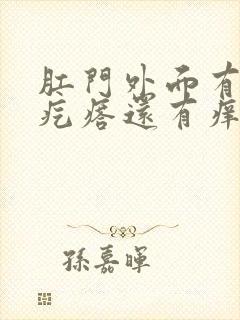 肛門外面有
疙瘩還有痒
孫嘉暉